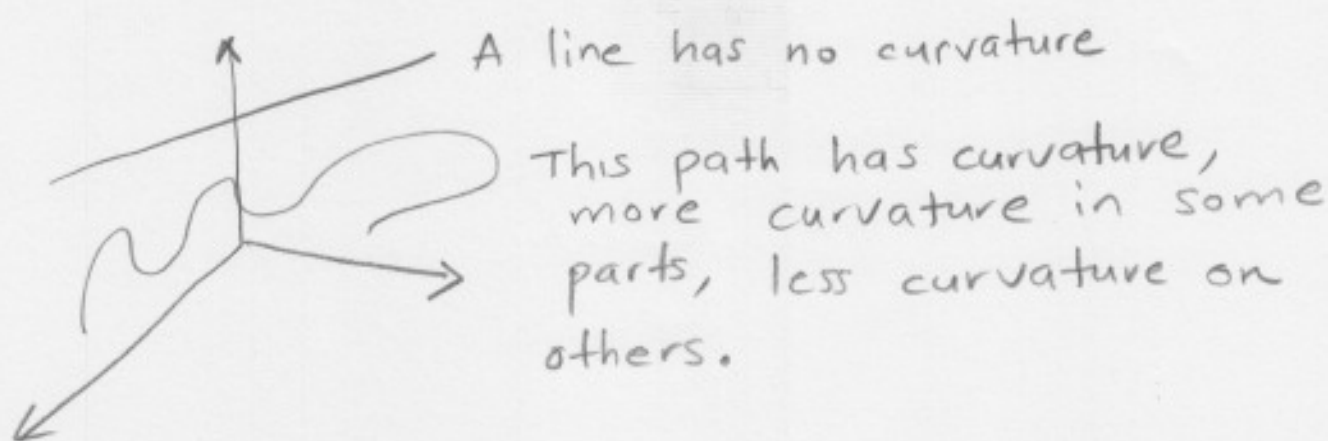 A line has no curvature
This path has curvature,
more curvature in some
parts, less curvature on
others.